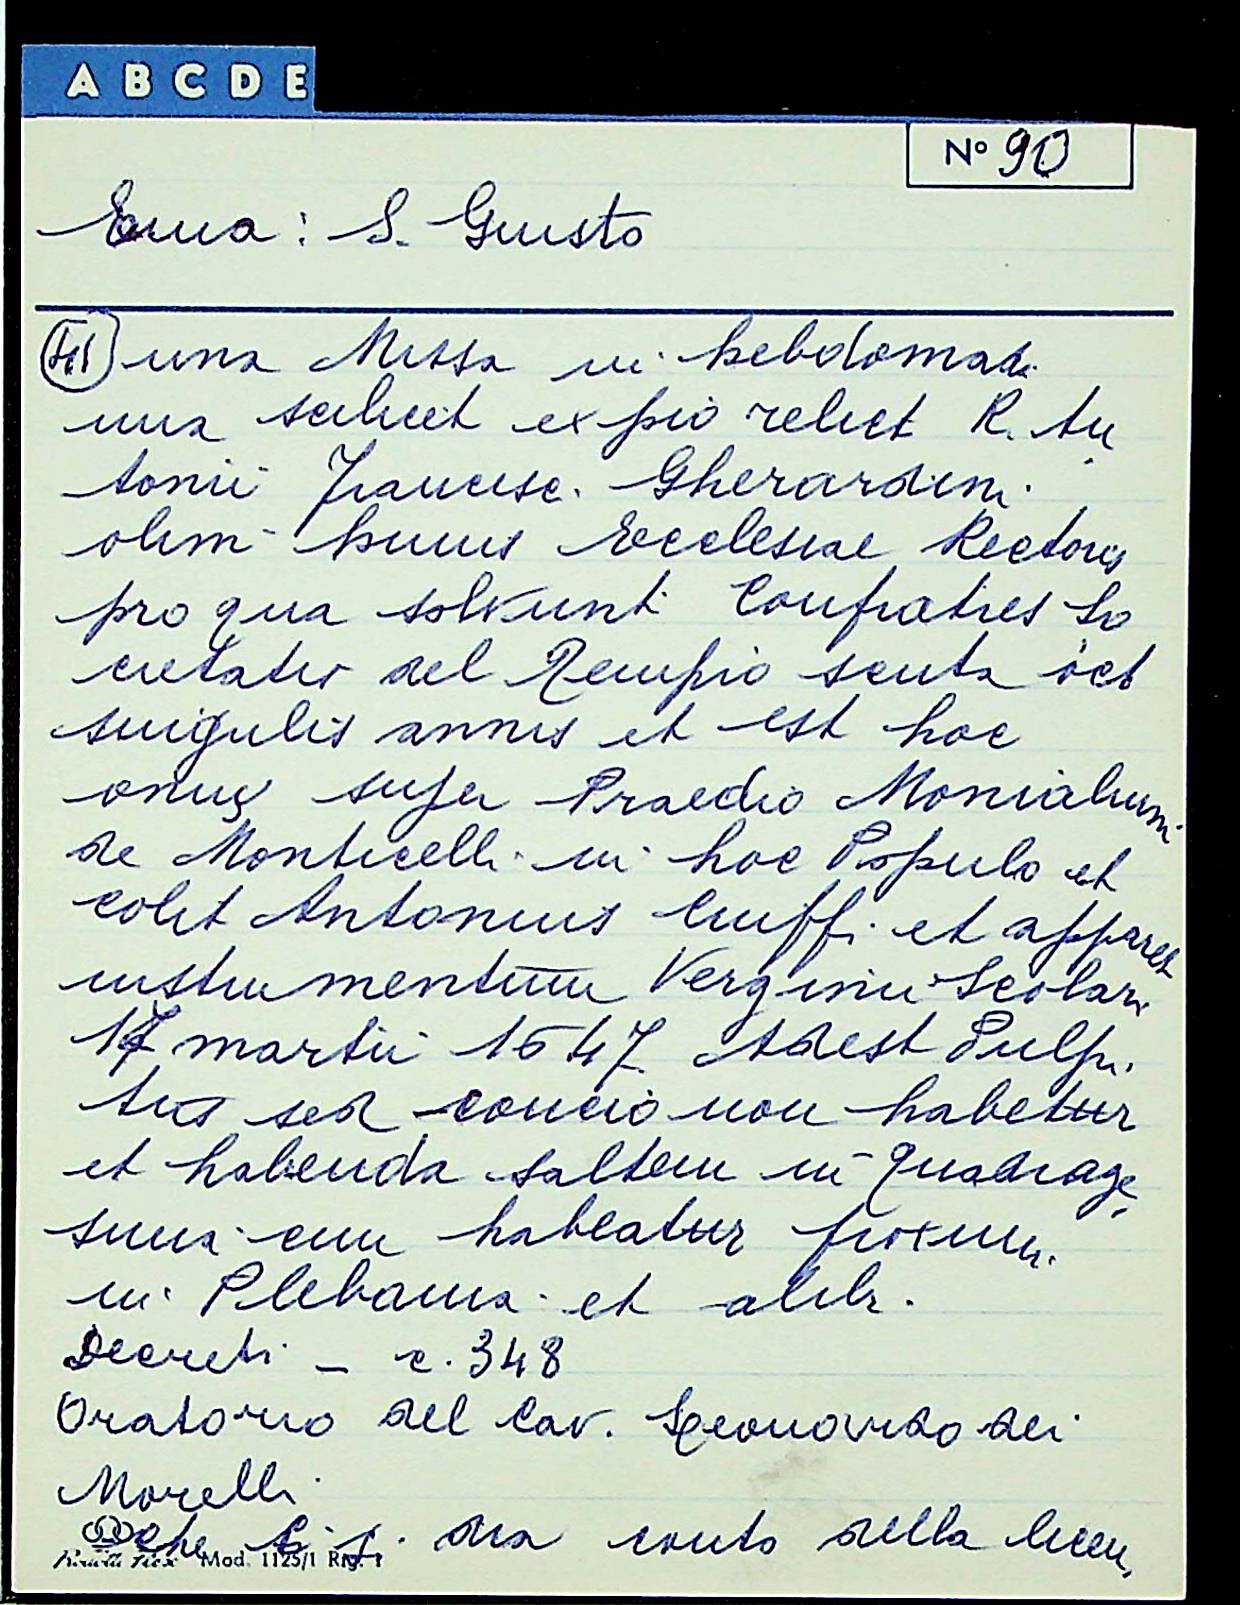 A B C D E
Nº 90
Ema: S. Giusto
una Missa in hebdomada
una scilicet ex pio relict R. An
tonii Francisc. Gherardini
olim huius Ecclesiae Rectoris
pro qua solvunt Confratres So
cietatis del Tempio scuta oct
singulis annis et est hoc
onus super Praedio Monialium
de Monticelli in hoc Populo et
colit Antonius Ciuffi et apparet
instrumentum Verginii Scolari
17 martii 1647 Adest Pulpi
tus sed concio non habetur
et habenda saltem in Quadrage
sima cum habeatur proxim.
in Plebania et alibi.
Decreti - c. 348
Oratorio del Cav. Leonardo dei
Morelli
che si dia conto della licen
Mod. 1125/1 Rig. 1